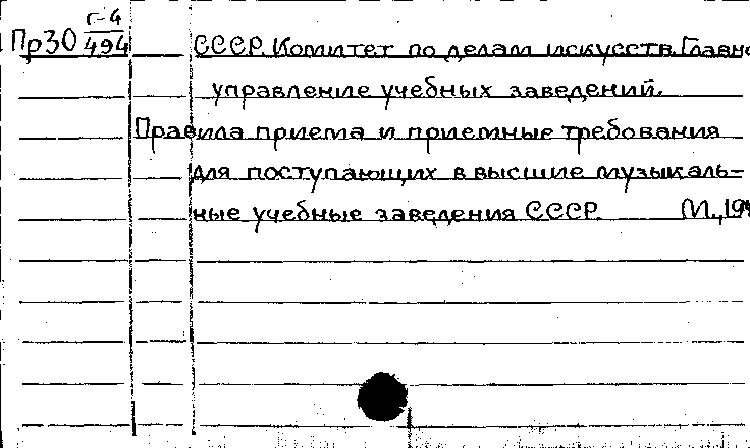 Пр30 г-4/494 СССР. Комитет по делам искусств. Главно
управление учебных заведений.
Правила приема и приемные требования
для поступающих в высшие музыкаль-
ные учебные заведения СССР. М., 194